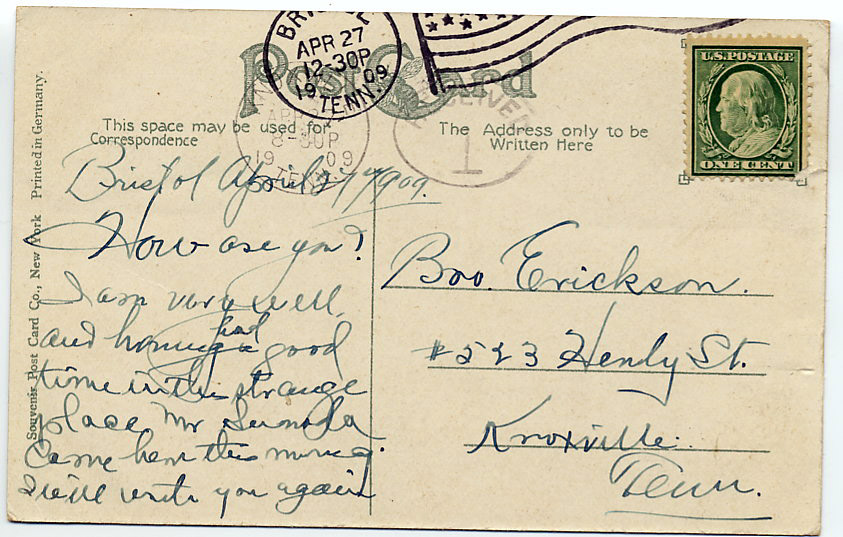 Post Card
BRISTOL
APR 27
12-30P
1909
TENN.
U.S. POSTAGE
ONE CENT
RECEIVED
1
8-30P
1909
TENN.
This space may be used for
Correspondence
The Address only to be
Written Here
Souvenir Post Card Co., New York Printed in Germany.
Bristol April 27th 1909.
How are you?
I am very well
and having had a good
time in this strange
place. Mr
Came here this morning.
I will write you again
Bro. Erickson.
#523 Henly St.
Knoxville.
Tenn.